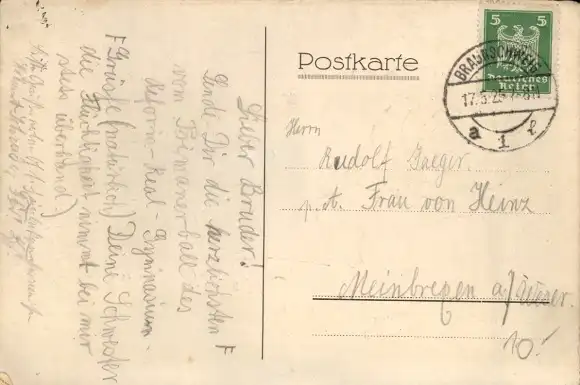 Postkarte
5 5
Deutsches
Reich
BRAUNSCHWEIG
17.3.
a 1 l
Herrn
Rudolf Jaeger.
p. A. Frau von Heinz
Meinbrexen a/Weser.
10.-
Lieber Bruder!
Sende Dir die herzlichsten F
vom Primanerball des
Reform-Real-Gymnasium-
F Grüße (natürlich) Deine Schwester
die Flüchtigkeit nimmt bei mir
stets überhand)